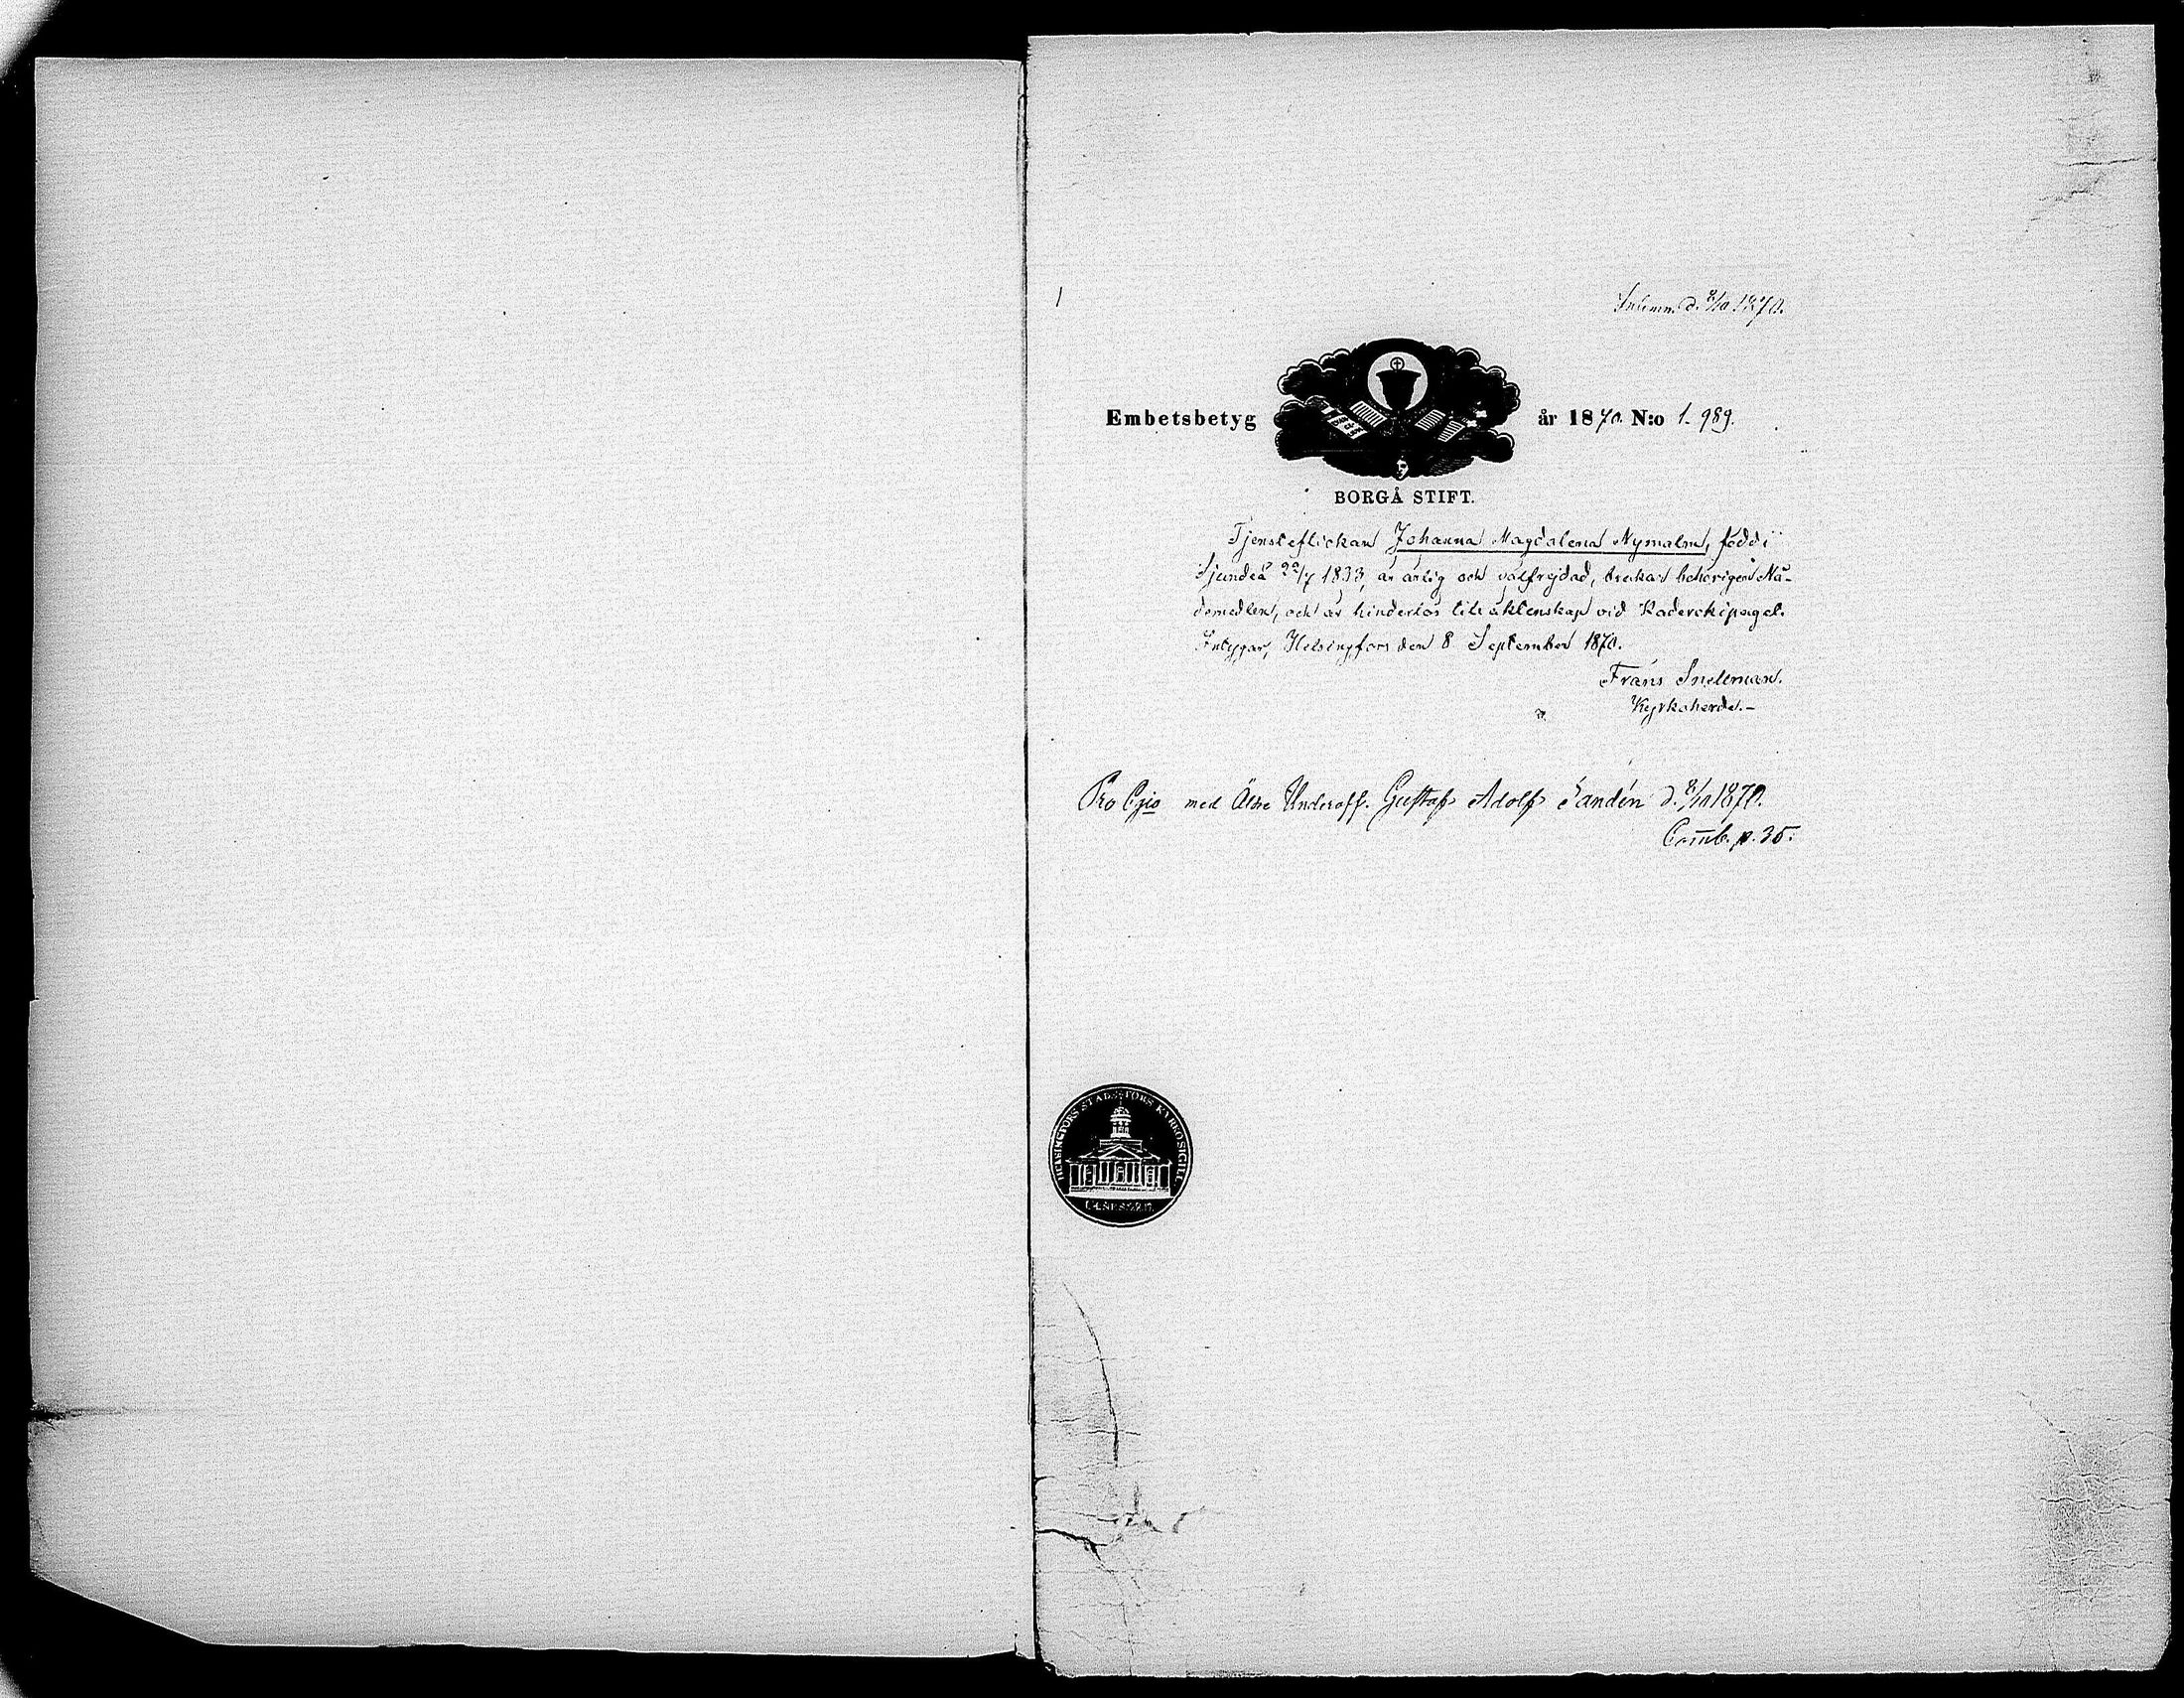 1
Inlemn. d. 8/10 1870.
Embetsbetyg år 1870. N:o 1.989.
BORGÅ STIFT.
Tjensteflickan Johanna Magdalena Nymalm, född i
Sjundeå 22/7 1833, är ärlig och välfrejdad, brukar behörigen Nå-
demedlen, och är hinderlös till äktenskap vid
Intygar, Helsingfors den 8 September 1870.
Frans Snellman.
Kyrkoherde.–
Pro Cijio med Äldre Underoff. Gustaf Adolf Sandén d. 8/10 1870.
Comb. p. 35.
HELSINGFORS STADSFÖRS KYRKOSIGILL